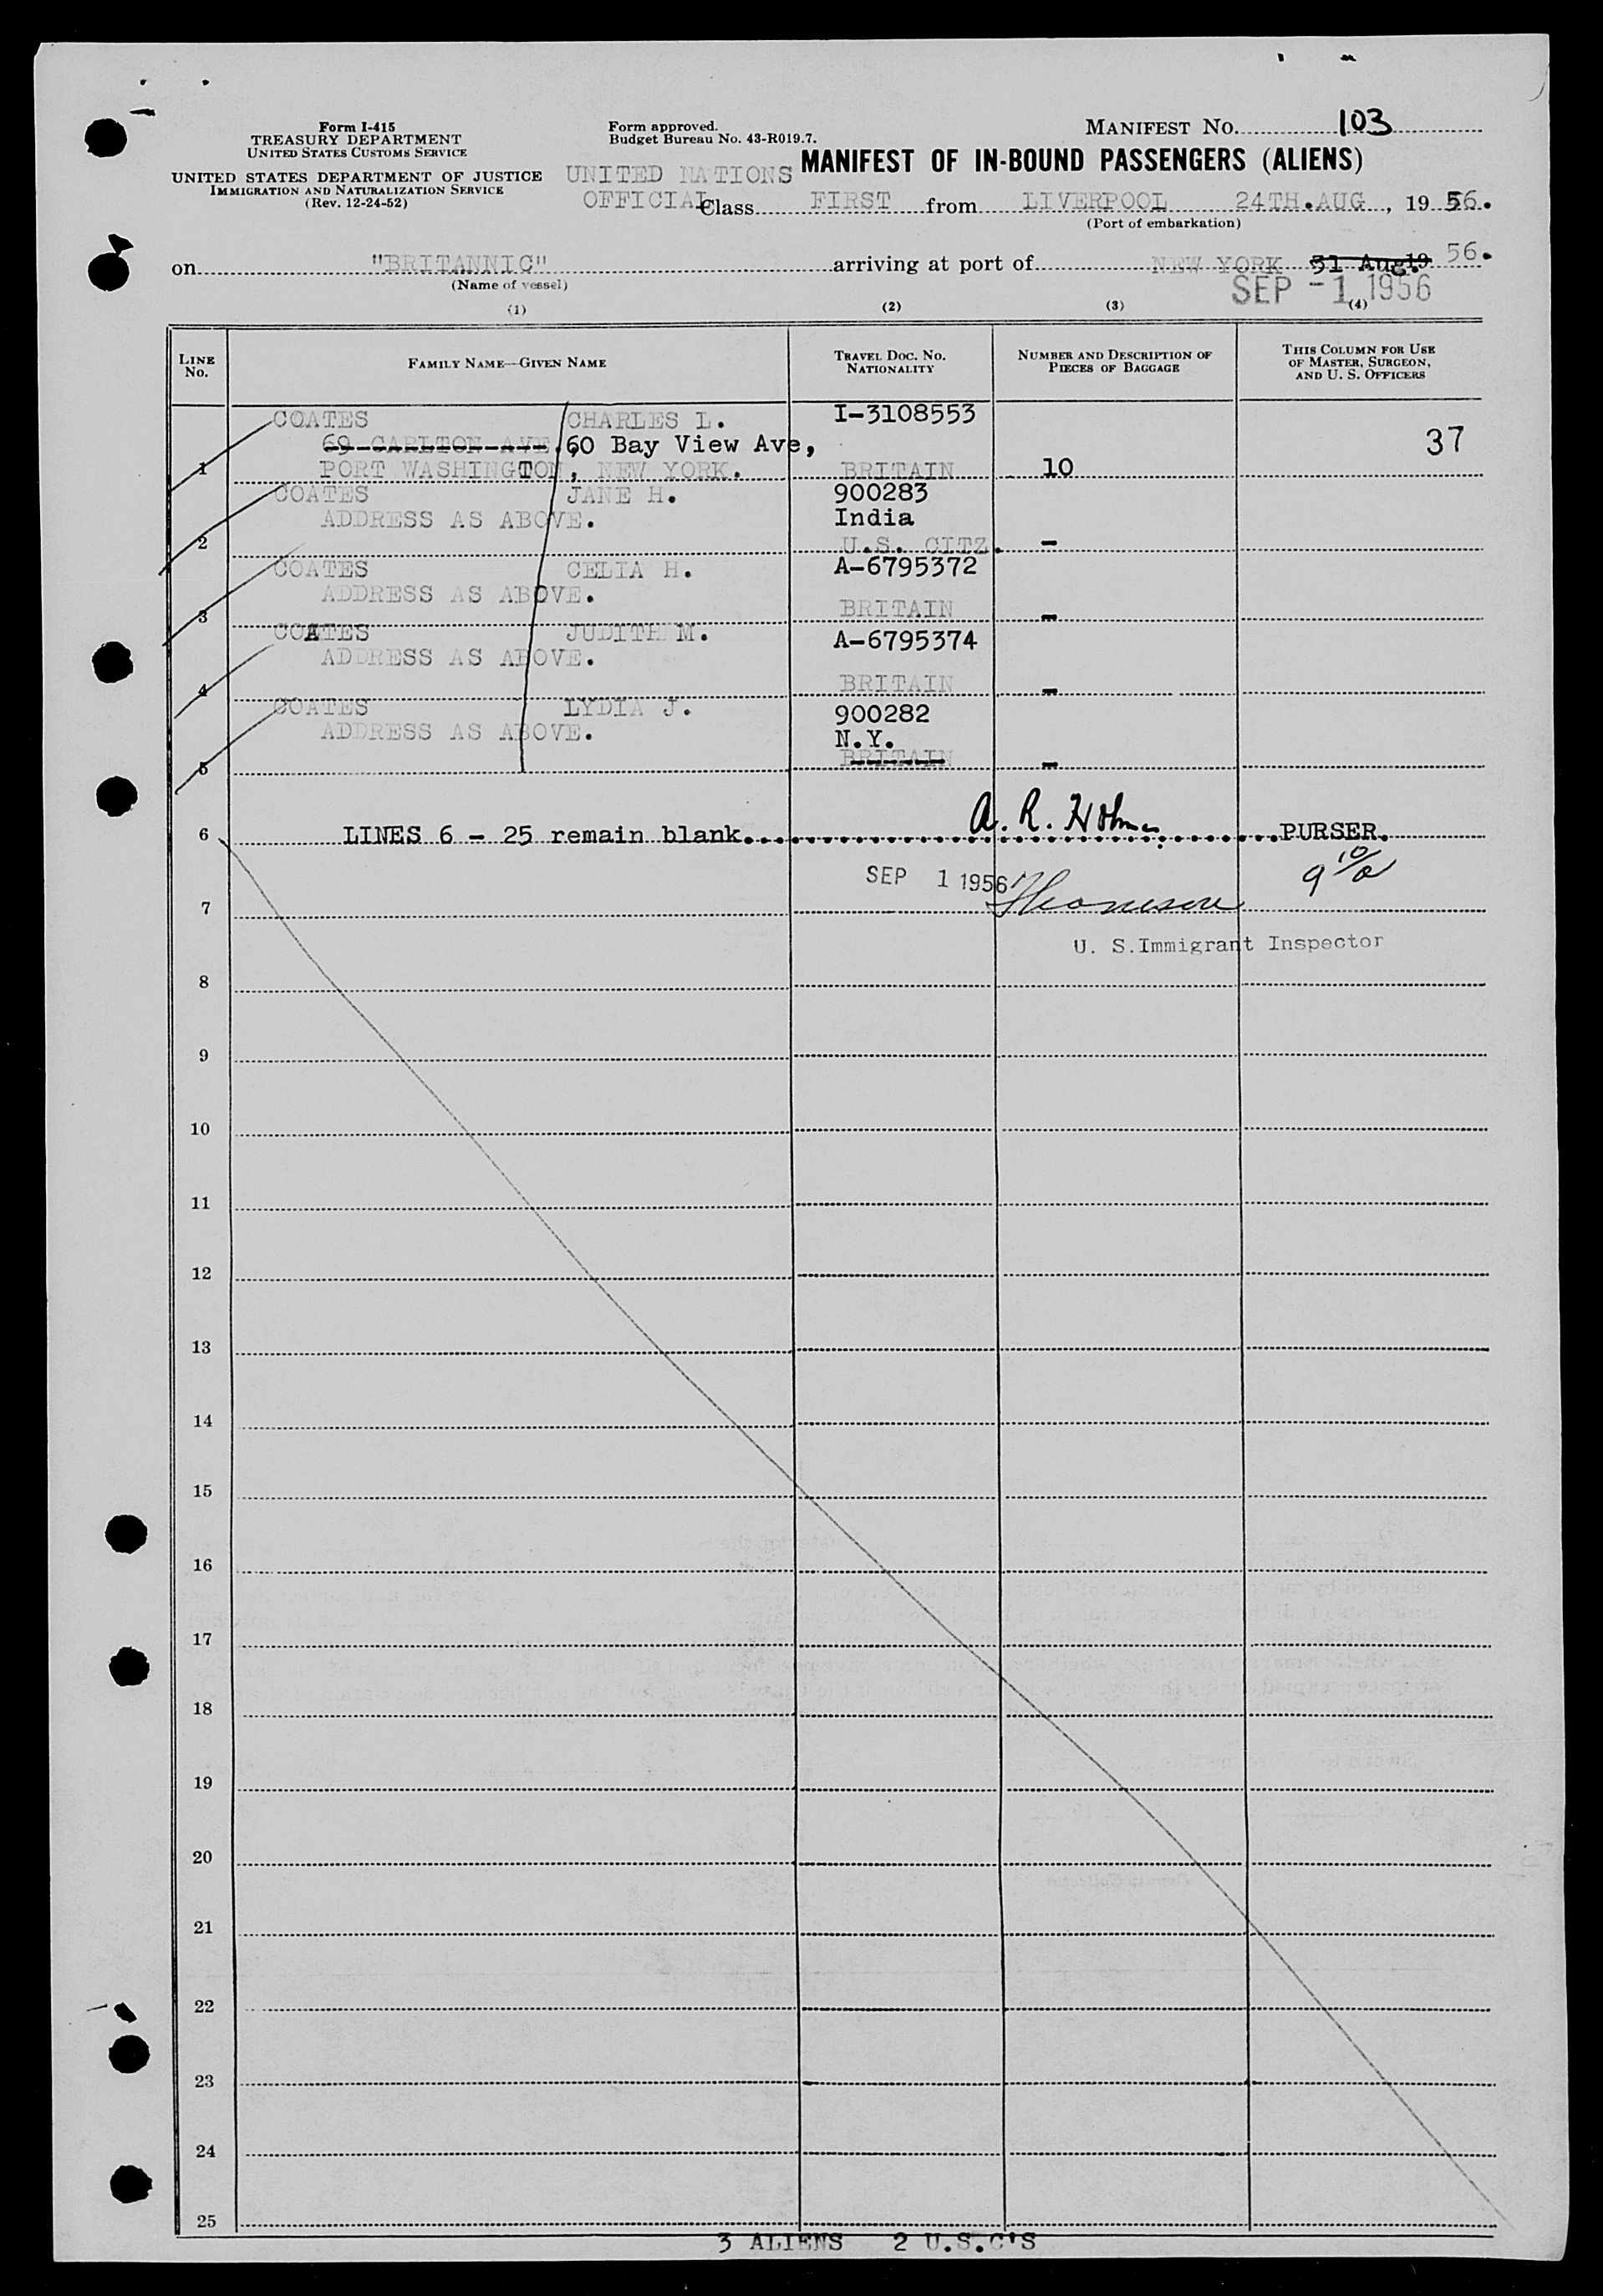 Form I-415
TREASURY DEPARTMENT
UNITED STATES CUSTOMS SERVICE
UNITED STATES DEPARTMENT OF JUSTICE
IMMIGRATION AND NATURALIZATION SERVICE
(Rev. 12-24-52)
Form approved.
Budget Bureau No. 43-R019.7.
MANIFEST NO. 103
MANIFEST OF IN-BOUND PASSENGERS (ALIENS)
UNITED NATIONS
OFFICIAL Class FIRST from LIVERPOOL 24TH.AUG, 19 56.
(Port of embarkation)
on "BRITANNIC" arriving at port of NEW YORK 31 Aug.19 56.
(Name of vessel)
SEP -1 1956
(1) (2) (3) (4)
LINE NO.
FAMILY NAME—GIVEN NAME
TRAVEL DOC. NO.
NATIONALITY
NUMBER AND DESCRIPTION OF
PIECES OF BAGGAGE
THIS COLUMN FOR USE
OF MASTER, SURGEON,
AND U. S. OFFICERS
COATES CHARLES L. I-3108553
69 CARLTON AVE. 60 Bay View Ave, 37
1 PORT WASHINGTON, NEW YORK. BRITAIN 10
COATES JANE H. 900283
ADDRESS AS ABOVE. India
2 U.S. CITZ. -
COATES CELIA H. A-6795372
ADDRESS AS ABOVE.
3 BRITAIN -
COATES JUDITH M. A-6795374
ADDRESS AS ABOVE.
4 BRITAIN -
COATES LYDIA J. 900282
ADDRESS AS ABOVE. N.Y.
5 BRITAIN -
6 LINES 6 - 25 remain blank. A. R. Holmes PURSER.
SEP 1 1956
7
U. S.Immigrant Inspector
8
9
10
11
12
13
14
15
16
17
18
19
20
21
22
23
24
25
3 ALIENS 2 U.S.C'S